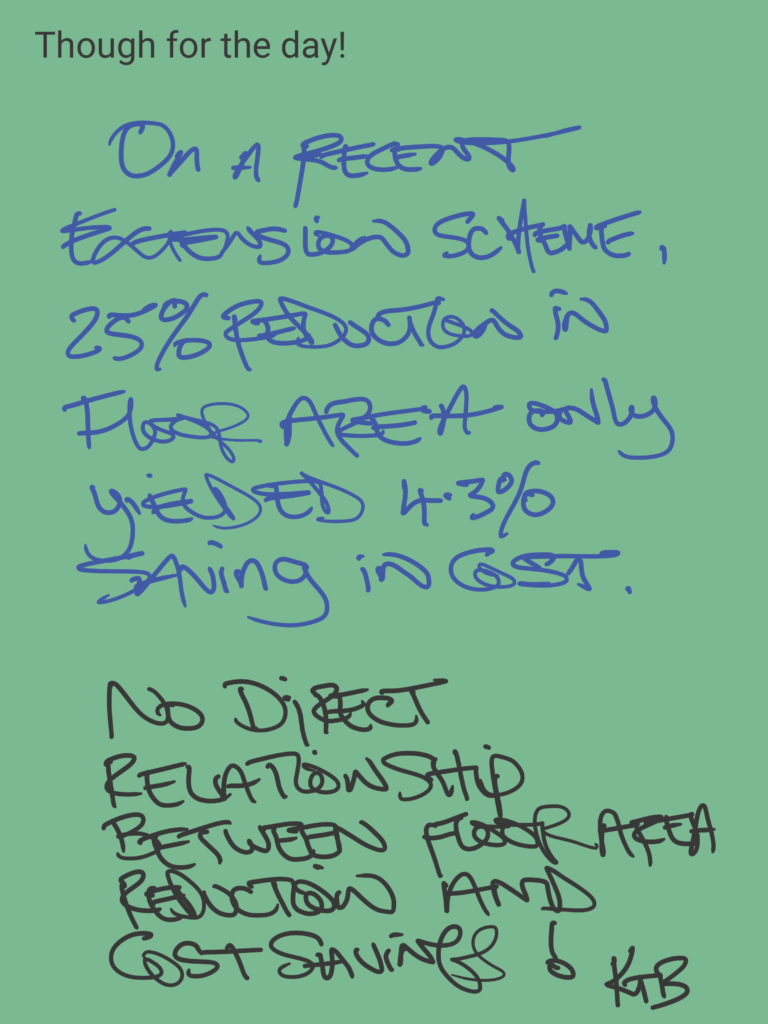 Though for the day!
On A RECENT
EXTENSION SCHEME,
25% REDUCTION IN
FLOOR AREA only
YIELDED 4.3%
SAVING IN COST.
NO DIRECT
RELATIONSHIP
BETWEEN FLOOR AREA
REDUCTION AND
COST SAVINGS!
KTB